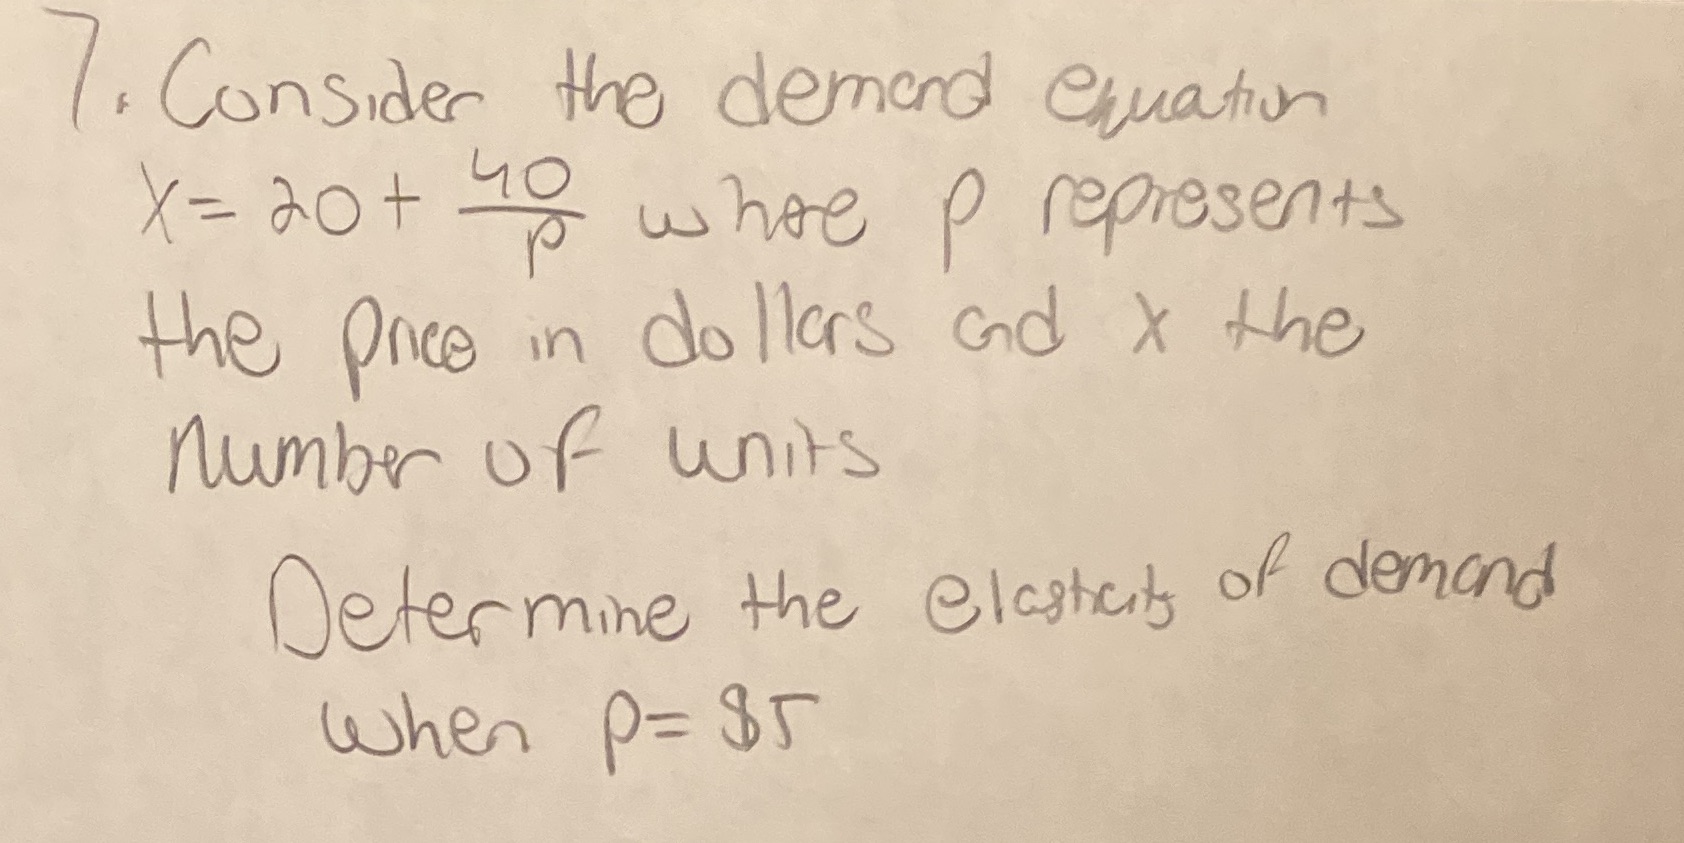 7. Consider the demand equation
x = 20 + 40/p where p represents
the price in dollars and x the
number of units
Determine the elasticity of demand
when p = $5